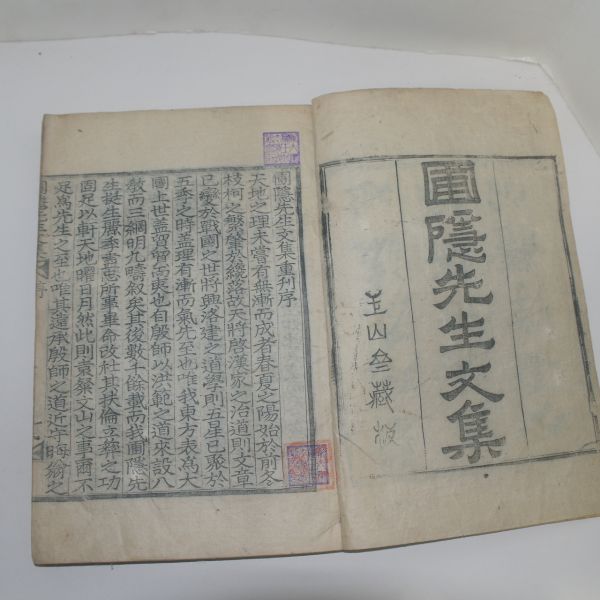 圃隱先生文集
玉山仝藏板
圃隱先生文集重刊序
天地之理未嘗有無漸而成者春夏之陽始於前冬
枝柯之繁肇於纔落故天將啓漢家之治道則文章
已變於戰國之世將興洛建之道學則五星已聚於
五季之時盖理有漸而氣先至也唯我東方表爲大
國上世盖貿貿焉爽也自殷師以洪範之道來設八
敎而三綱明九疇叙矣其後數千餘載而我圃隱先
生挺生麗季當忠所軍畢命改社其扶倫立彛之功
固足以軒天地曜日月然此則袁粲文山之事爾不
足爲先生之至也唯其遠承殷師之道近守晦翁之